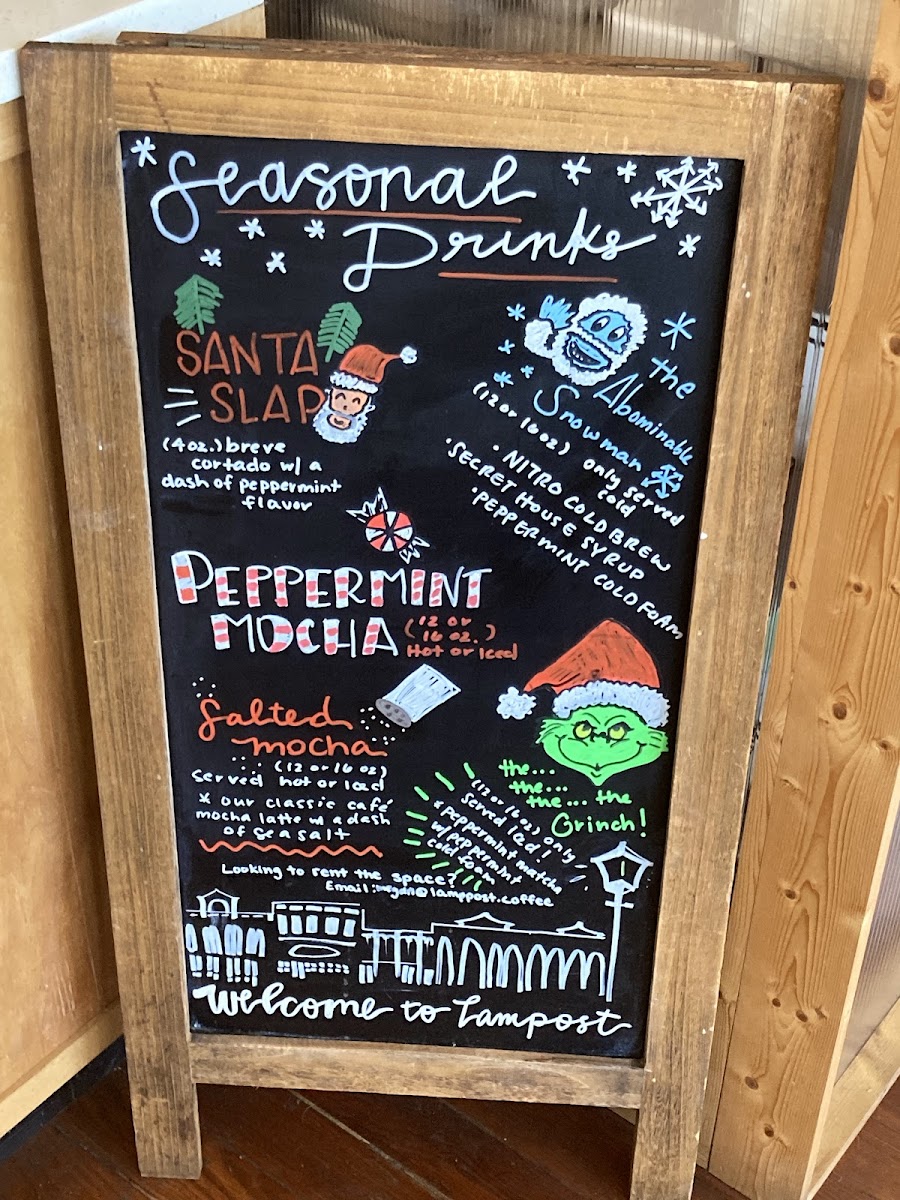 Seasonal
Drinks
SANTA
SLAP
(4oz.) breve
cortado w/ a
dash of peppermint
flavor
the
Abominable
Snowman
(12 or 16oz) only served
cold
• NITRO COLD BREW
• SECRET HOUSE SYRUP
• PEPPERMINT COLD FOAM
PEPPERMINT
MOCHA
(12 or
16 oz.)
Hot or Iced
Salted
mocha
(12 or 16 oz)
served hot or Iced
* our classic café
mocha latte w/ a dash
of sea salt
the...
the...
the... the
Grinch!
(12/16oz) only
served Iced!
* peppermint matcha
w/ peppermint
cold foam
Looking to rent the space?
Email: @lamppost.coffee
Welcome to Lampost